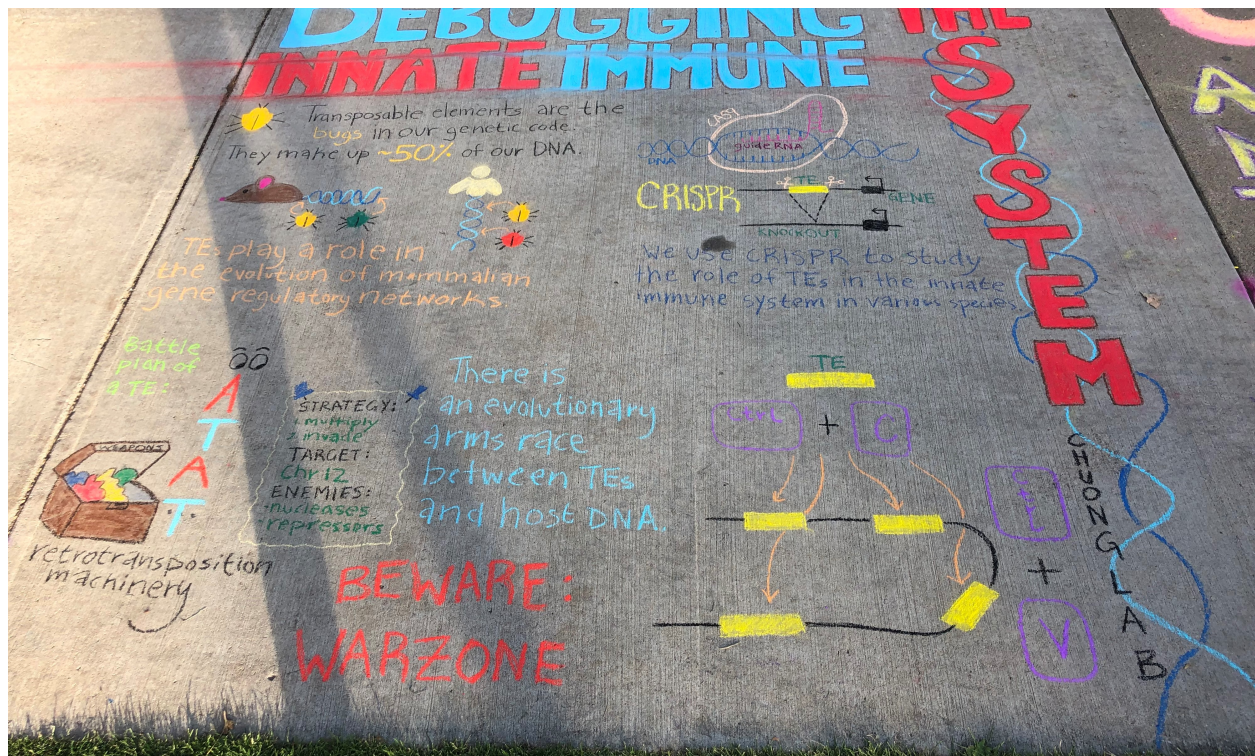 DEBUGGING THE
INNATE IMMUNE
SYSTEM
Transposable elements are the
bugs in our genetic code.
They make up ~50% of our DNA.
TEs play a role in
the evolution of mammalian
gene regulatory networks.
CAS9
guideRNA
DNA
CRISPR
TE
GENE
KNOCKOUT
We use CRISPR to study
the role of TEs in the innate
immune system in various species.
Battle
plan of
a TE:
ATAT
WEAPONS
retrotransposition
machinery
STRATEGY:
multiply
invade
TARGET:
Chr12
ENEMIES:
nucleases
repressors
There is
an evolutionary
arms race
between TEs
and host DNA.
BEWARE:
WARZONE
TE
Ctrl
+
C
Ctrl
+
V
CHUONG LAB